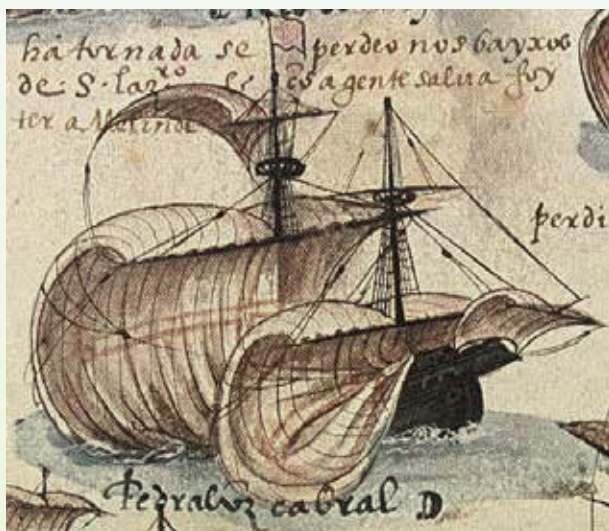 há tornada se perdeo nos bayxos
de S. lazro a gente salua foy
ter a Melinde
perdi
Pedraluz cabral D